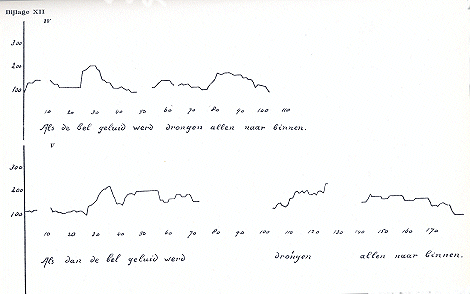 Bijlage XII
IV
300
200
100
10 20 30 40 50 60 70 80 90 100 110
Als de bel geluid werd drongen allen naar binnen.
V
300
200
100
10 20 30 40 50 60 70 80 90 100 110 120 130 140 150 160 170
Als dan de bel geluid werd drongen allen naar binnen.